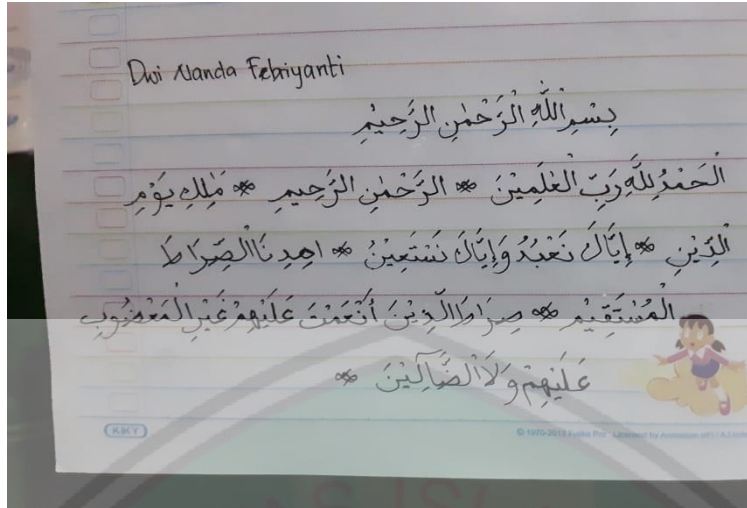 Dwi Nanda Febriyanti
بِسْمِ اللَّهِ الرَّحْمٰنِ الرَّحِيْمِ
اَلْحَمْدُ لِلَّهِ رَبِّ الْعٰلَمِيْنَ * الرَّحْمٰنِ الرَّحِيمِ * مٰلِكِ يَوْمِ
الدِّيْنِ * إِيَّاكَ نَعْبُدُ وَإِيَّاكَ نَسْتَعِيْنُ * اهْدِنَا الصِّرَاطَ
الْمُسْتَقِيْمَ * صِرَاطَ الَّذِيْنَ أَنْعَمْتَ عَلَيْهِمْ غَيْرِ الْمَغْضُوْبِ
عَلَيْهِمْ وَلَا الضَّآلِّيْنَ *
KIKY